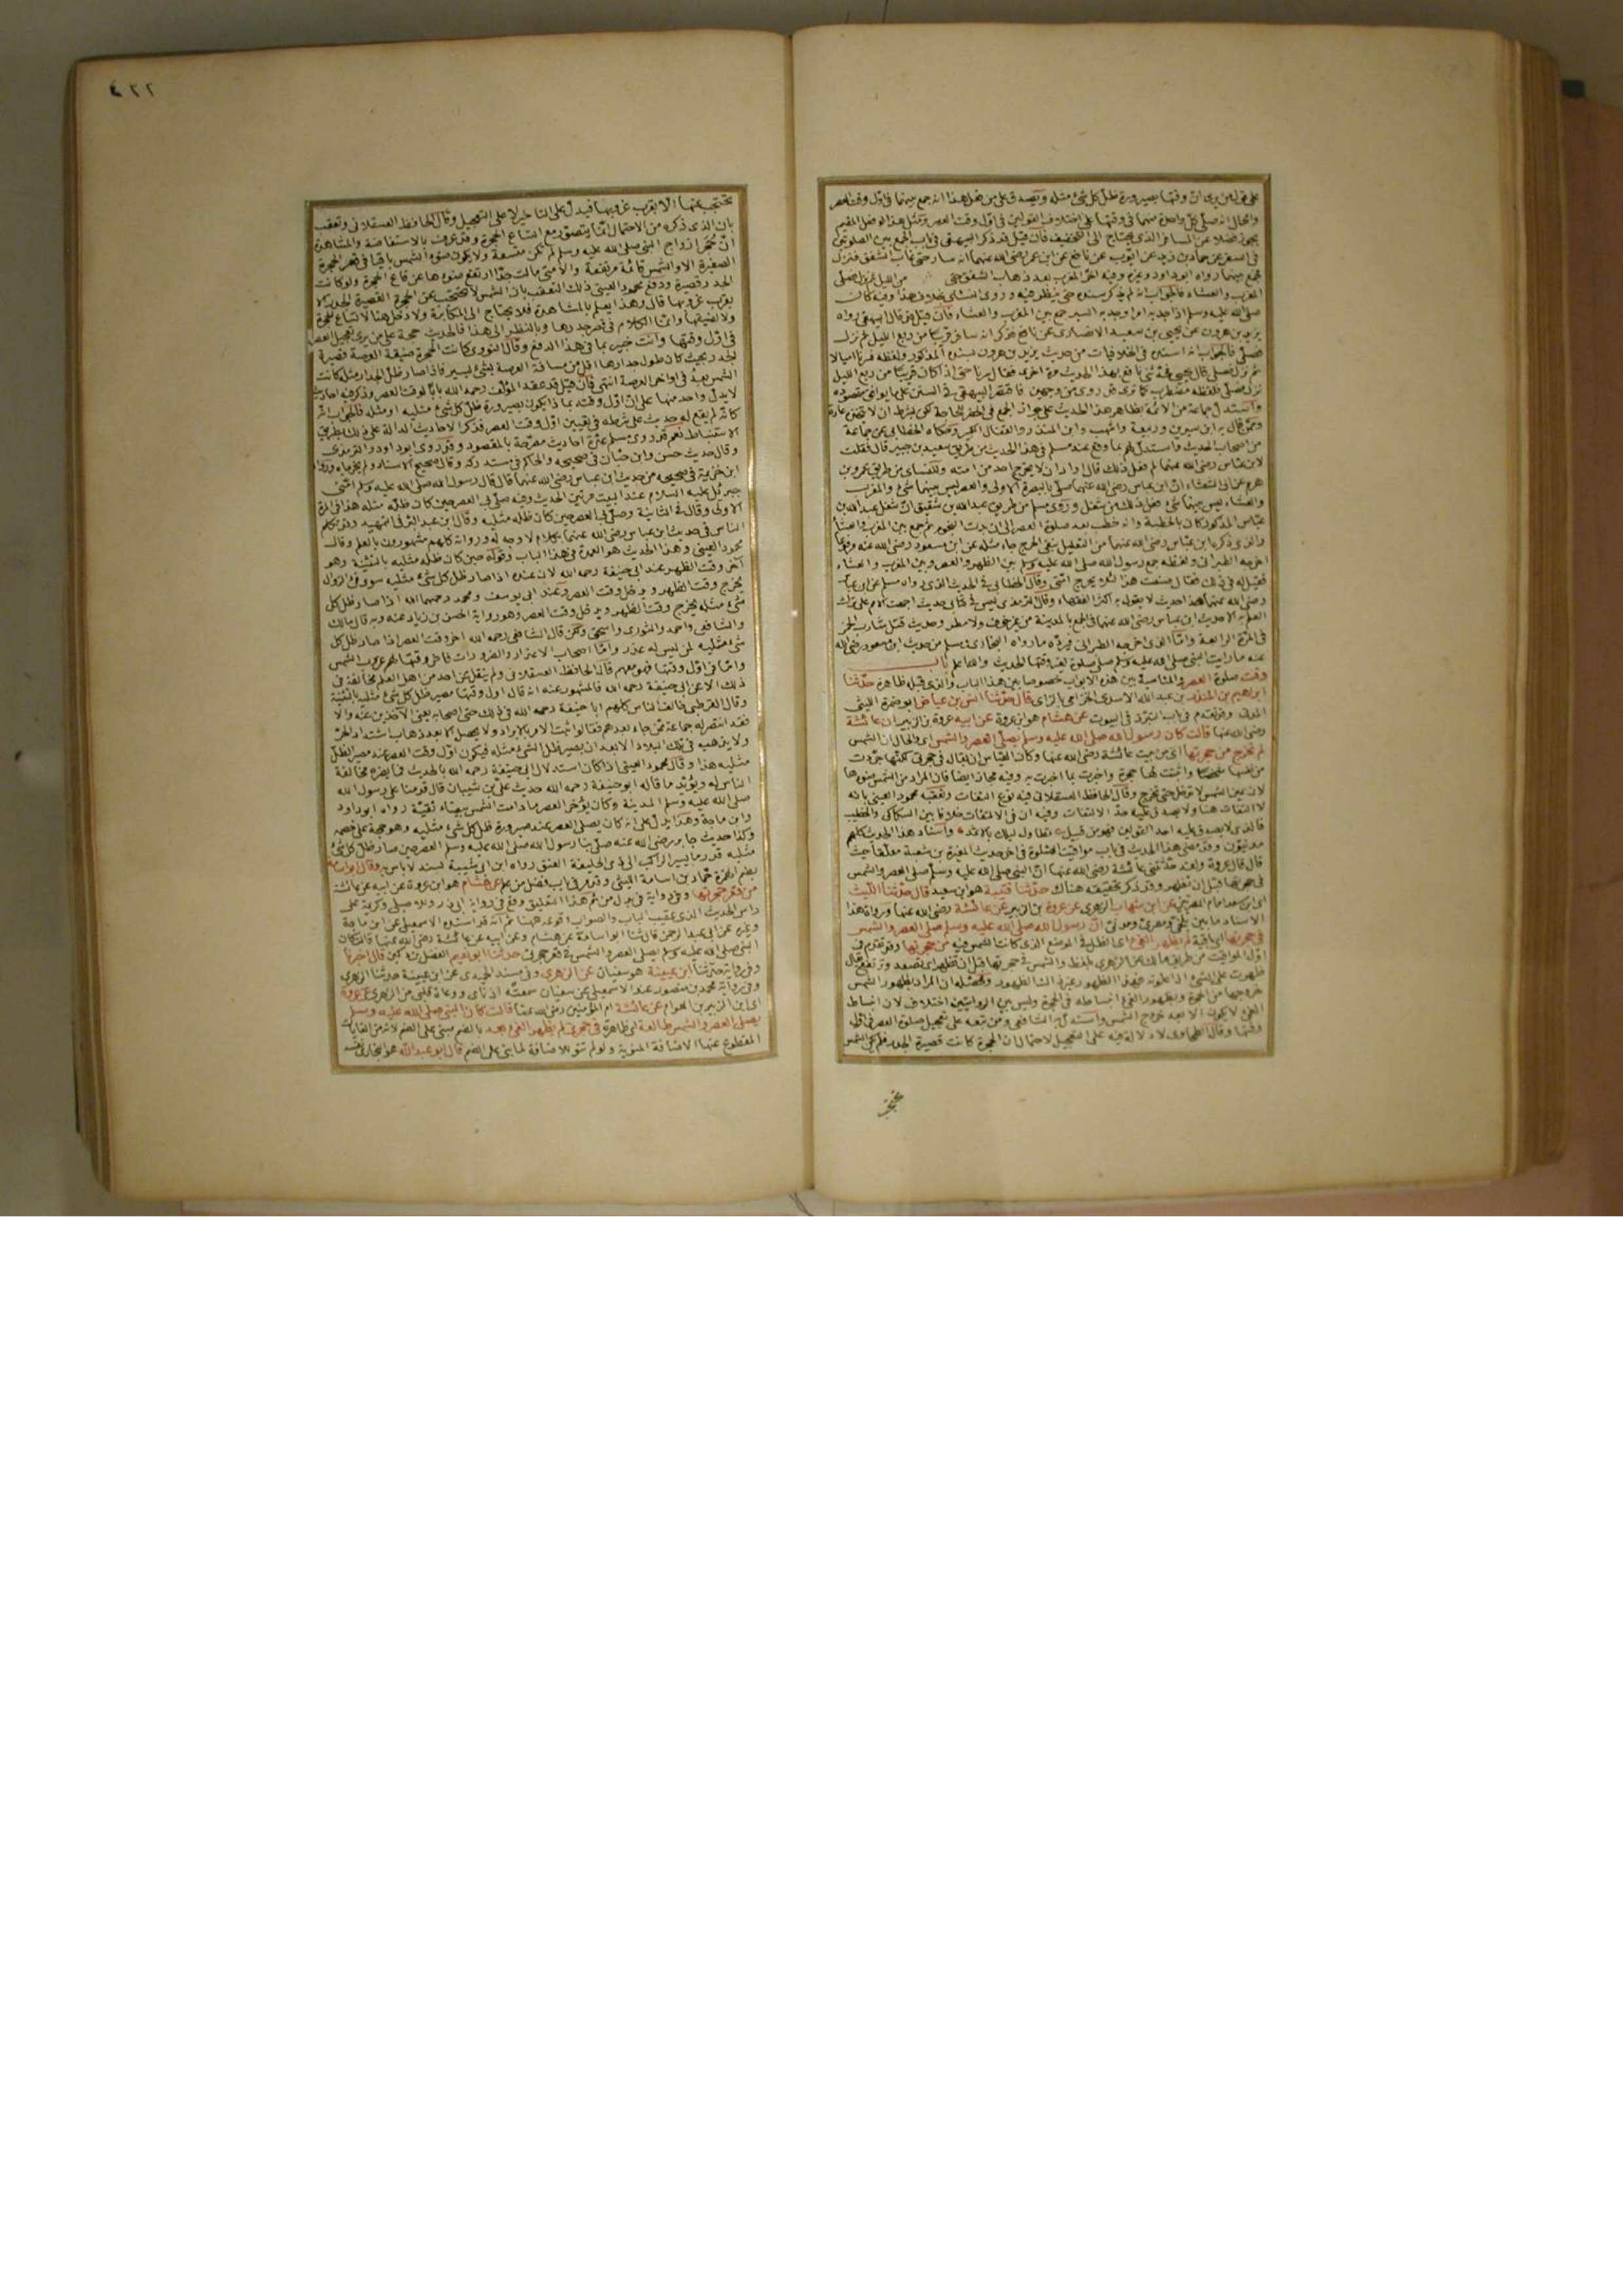 ٤٢٢
على قول من يرى ان وقتها بصيرورة ظل كل شئ مثله ويصدق على من فعل هذا انه جمع بينهما فى اول وقت العصر
والحال انه صلى كل واحدة منهما فى وقتها على اختلاف القولين فى اول وقت العصر ومثل هذا لو فعل المقيم
يجوز فضلا عن المسافر الذى يحتاج الى التخفيف فان قيل قد ذكر البيهقى فى باب الجمع بين الصلوتين
فى السفر عن حماد بن زيد عن ايوب عن نافع عن ابن عمر رضى الله عنهما انه سار حتى غاب الشفق فنزل
فجمع بينهما رواه ابو داود وغيره وفيه اخر المغرب بعد ذهاب الشفق حتى من الليل ثم نزل فصلى
المغرب والعشاء فالجواب انه لم يذكر سنده حتى ينظر فيه وروى النسائى بخلاف هذا وفيه كان
صلى الله عليه وسلم اذا جد به امر او جد به السير جمع بين المغرب والعشاء فان قيل قال البيهقى رواه
يزيد بن هرون عن يحيى بن سعيد الانصارى عن نافع فذكر انه سار قريبا من ربع الليل ثم نزل
فصلى فالجواب انه اسنده فى الخلافيات من حديث يزيد بن هرون بسنده المذكور ولفظه فسرنا اميالا
ثم نزل فصلى قال يحيى فحدثنى نافع بهذا الحديث مرة اخرى فقال سرنا حتى اذا كان قريبا من ربع الليل
نزل فصلى فلفظه مضطرب كما ترى قد روى من وجهين فاقتصر البيهقى فى السنن على ما يوافق مقصوده
واستدل جماعة من الائمة بظاهر هذا الحديث على جواز الجمع فى الحضر للحاجة لكن بشرط ان لا يتخذ عادة
وممن قال به ابن سيرين وربيعة واشهب وابن المنذر والقفال الكبير وحكاه الخطابى عن جماعة
من اصحاب الحديث واستدل لهم بما وقع عند مسلم فى هذا الحديث من طريق سعيد بن جبير قال فقلت
لابن عباس رضى الله عنهما لم فعل ذلك قال اراد ان لا يحرج احد من امته وللنسائى من طريق عمرو بن
هرم عن ابى الشعثاء ان ابن عباس رضى الله عنهما صلى بالبصرة الاولى والعصر ليس بينهما شئ والمغرب
والعشاء ليس بينهما شئ فعل ذلك من شغل وروى مسلم من طريق عبد الله بن شقيق ان شغل عبد الله بن
عباس المذكور كان بالخطبة وانه خطب بعد صلوة العصر الى ان بدت النجوم ثم جمع بين المغرب والعشاء
والذى ذكره ابن عباس رضى الله عنهما من التعليل بنفى الحرج جاء مثله عن ابن مسعود رضى الله عنه مرفوعا
اخرجه الطبرانى ولفظه جمع رسول الله صلى الله عليه وسلم بين الظهر والعصر وبين المغرب والعشاء
فقيل له فى ذلك فقال صنعت هذا لئلا يحرج امتى وقال الخطابى فى الحديث الذى رواه مسلم عن ابن عباس
رضى الله عنهما هذا حديث لا يقول به اكثر الفقهاء وقال الترمذى ليس فى كتابى حديث اجمعت الامة على ترك
العمل به الا حديث ابن عباس رضى الله عنهما فى الجمع بالمدينة من غير خوف ولا مطر وحديث قتل شارب الخمر
فى المرة الرابعة واما الذى اخرجه الطبرانى فيرده ما رواه البخارى ومسلم من حديث ابن مسعود رضى الله
عنه ما رايت النبى صلى الله عليه وسلم صلى صلوة لغير وقتها الحديث والله اعلم باب
وقت صلوة العصر والمناسبة بين هذه الابواب خصوصا بين هذا الباب والذى قبله ظاهرة حدثنا
ابراهيم بن المنذر بن عبد الله الاسدى الحزامى بالزاى قال حدثنا انس بن عياض ابو ضمرة الليثى
المدنى وقد تقدم فى باب التبرز فى البيوت عن هشام هو ابن عروة عن ابيه عروة بن الزبير ان عائشة
رضى الله عنها قالت كان رسول الله صلى الله عليه وسلم يصلى العصر والشمس اى والحال ان الشمس
لم تخرج من حجرتها اى من بيت عائشة رضى الله عنها وكان القياس ان يقال فى حجرتى لكنها جردت
من نفسها شخصا واثبتت لها حجرة واخبرت بما اخبرت به وفيه مجاز ايضا فان المراد من الشمس ضوءها
لان عين الشمس لا تدخل حتى تخرج وقال الحافظ العسقلانى فيه نوع التفات وتعقبه محمود العينى بانه
لا التفات هنا ولا يصدق عليه حد الالتفات وفيه ان فى الالتفات خلافا بين السكاكى والخطيب
فالذى لا يصدق عليه احد القولين فهو من قبيل تطاول ليلك بالاثمد واسناد هذا الحديث كلهم
مدنيون وقد مضى هذا الحديث فى باب مواقيت الصلوة فى اخر حديث المغيرة بن شعبة معلقا حيث
قال قال عروة ولقد حدثتنى عائشة رضى الله عنها ان النبى صلى الله عليه وسلم صلى العصر والشمس
فى حجرتها قبل ان تظهر وقد ذكر تحقيقه هناك حدثنا قتيبة هو ابن سعيد قال حدثنا الليث
اى ابن سعد امام المصريين عن ابن شهاب الزهرى عن عروة بن الزبير عن عائشة رضى الله عنها ورواة هذا
الاسناد ما بين بلخى ومصرى ومدنى ان رسول الله صلى الله عليه وسلم صلى العصر والشمس
فى حجرتها اى باقية لم يظهر الفئ اى الظل فى الموضع الذى كانت الشمس فيه من حجرتها وقد تقدم فى
اول المواقيت من طريق مالك عن الزهرى بلفظ والشمس فى حجرتها قبل ان تظهر اى تصعد وترتفع يقال
ظهرت على الشئ اذا علوته فهذا الظهور غير ذلك الظهور ومحصله ان المراد بظهور الشمس
خروجها من الحجرة وبظهور الفئ انبساطه فى الحجرة وليس بين الروايتين اختلاف لان انبساط
الفئ لا يكون الا بعد خروج الشمس واستدل به الشافعى ومن تبعه على تعجيل صلوة العصر فى اول
وقتها وقال الطحاوى لا دلالة فيه على التعجيل لاحتمال ان الحجرة كانت قصيرة الجدر فلم تكن الشمس
تحتجب
تحتجب عنها الا بقرب غروبها فيدل على التاخير لا على التعجيل وقال الحافظ العسقلانى وتعقب
بان الذى ذكره من الاحتمال انما يتصور مع اتساع الحجرة وقد عرف بالاستفاضة والمشاهدة
ان حجر ازواج النبى صلى الله عليه وسلم لم تكن متسعة ولا يكون ضوء الشمس باقيا فى قعر الحجرة
الصغيرة الا والشمس قائمة مرتفعة والا متى مالت جدا ارتفع ضوءها عن قاع الحجرة ولو كانت
الجدر قصيرة ودفع محمود العينى ذلك التعقب بان الشمس لا تحتجب عن الحجرة القصيرة الجدر الا
بقرب غروبها قال وهذا يعلم بالمشاهدة فلا يحتاج الى المكابرة ولا دخل هنا لاتساع الحجرة
ولا لضيقها وانما الكلام فى قصر جدرها وبالنظر الى هذا فالحديث حجة على من يرى تعجيل العصر
فى اول وقتها وانت خبير بما فى هذا الدفع وقال النووى كانت الحجرة ضيقة العرصة قصيرة
الجدر بحيث كان طول جدارها اقل من مسافة العرصة بشئ يسير فاذا صار ظل الجدار مثله كانت
الشمس بعد فى اواخر العرصة انتهى فان قيل قد عقد المؤلف رحمه الله بابا لوقت العصر وذكر فيه احاديث
لا يدل واحد منها على ان اول وقته بماذا يكون بصيرورة ظل كل شئ مثليه او مثله فالجواب انه
كانه لم يقع له حديث على شرطه فى تعيين اول وقت العصر فذكر الاحاديث الدالة على ذلك بطريق
الاستنباط نعم قد روى مسلم عدة احاديث مصرحة بالمقصود وقد روى ابو داود والترمذى
وقال حديث حسن وابن حبان فى صحيحه والحاكم فى مستدركه وقال صحيح الاسناد ولم يخرجاه ورواه
ابن خزيمة فى صحيحه من حديث ابن عباس رضى الله عنهما قال قال رسول الله صلى الله عليه وسلم امنى
جبرئيل عليه السلام عند البيت مرتين الحديث وفيه صلى بى العصر حين كان ظله مثله هذا فى المرة
الاولى وقال فى الثانية وصلى بى العصر حين كان ظله مثليه وقال ابن عبد البر فى التمهيد وقد تكلم
الناس فى حديث ابن عباس رضى الله عنهما بكلام لا وجه له ورواته كلهم مشهورون بالعلم وقال
محمود العينى وهذا الحديث هو العمدة فى هذا الباب وقوله حين كان ظله مثليه بالتثنية وهو
آخر وقت الظهر عند ابى حنيفة رحمه الله لان عنده اذا صار ظل كل شئ مثليه سوى فئ الزوال
يخرج وقت الظهر ويدخل وقت العصر وعند ابى يوسف ومحمد رحمهما الله اذا صار ظل كل
شئ مثله يخرج وقت الظهر ويدخل وقت العصر وهو رواية الحسن بن زياد عنه وبه قال مالك
والشافعى واحمد والثورى واسحق ولكن قال الشافعى رحمه الله اخر وقت العصر اذا صار ظل كل
شئ مثليه لمن ليس له عذر واما اصحاب الاعذار والضرورات فاخر وقتها لهم غروب الشمس
واما فى اول وقتها فهو معهم قال الحافظ العسقلانى ولم ينقل عن احد من اهل العلم مخالفة فى
ذلك الا عن ابى حنيفة رحمه الله فالمشهور عنه انه قال اول وقتها مصير ظل كل شئ مثليه بالتثنية
وقال القرطبى خالفه الناس كلهم ابا حنيفة رحمه الله فى ذلك حتى اصحابه يعنى الآخذين عنه والا
فقد انتصر له جماعة ممن جاء بعدهم فقالوا ثبت الامر بالابراد ولا يحصل الا بعد ذهاب اشتداد الحر
ولا يذهب فى تلك البلاد الا بعد ان يصير ظل الشئ مثله فيكون اول وقت العصر عند مصير الظل
مثليه هذا وقال محمود العينى اذا كان استدلال ابى حنيفة رحمه الله بالحديث فما يضره مخالفة
الناس له ويؤيد ما قاله ابو حنيفة رحمه الله حديث على بن شيبان قال قدمنا على رسول الله
صلى الله عليه وسلم المدينة وكان يؤخر العصر ما دامت الشمس بيضاء نقية رواه ابو داود
وابن ماجة وهذا يدل على انه كان يصلى العصر عند صيرورة ظل كل شئ مثليه وهو حجة على خصمه
وكذا حديث جابر رضى الله عنه صلى بنا رسول الله صلى الله عليه وسلم العصر حين صار ظل كل شئ
مثليه قدر ما يسير الراكب الى ذى الحليفة العنق رواه ابن ابى شيبة بسند لا باس به وقال ابو اسامة
بضم الهمزة حماد بن اسامة الليثى وقد مر فى باب فضل من علم عن هشام هو ابن عروة عن ابيه عن عائشة
من قعر حجرتها وفى رواية فى بدل من ثم هذا التعليق وقع فى رواية ابى ذر والاصيلى وكريمة على
راس الحديث الذى عقيب الباب والصواب وقوعه ههنا ثم انه قد اسنده الاسمعيلى عن ابن ماجة
وغيره عن ابى عبد الرحمن قال ثنا ابو اسامة عن هشام وعن ابيه عن عائشة رضى الله عنها قالت كان
النبى صلى الله عليه وسلم يصلى العصر والشمس فى قعر حجرتى حدثنا ابو نعيم الفضل بن دكين قال اخبرنا
وفى رواية حدثنا ابن عيينة هو سفيان عن الزهرى وفى مسند الحميدى عن ابن عيينة حدثنا الزهرى
وفى رواية محمد بن منصور عند الاسمعيلى عن سفيان سمعته اذناى ووعاه قلبى من الزهرى عن عروة
اى ابن الزبير بن العوام عن عائشة ام المؤمنين رضى الله عنها قالت كان النبى صلى الله عليه وسلم
يصلى العصر والشمس طالعة اى ظاهرة فى حجرتى لم يظهر الفئ بعد بالضم مبنى على الضم لانه من الغايات
المقطوع عنها الاضافة المنوية ولو لم تنو الاضافة لما بنى على الضم قال ابو عبد الله هو البخارى نفسه